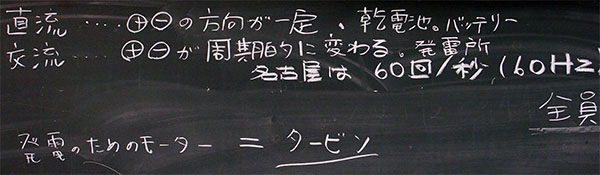 直流 ‥‥ ⊕⊖の方向が一定、乾電池。バッテリー
交流 ‥‥ ⊕⊖が周期的に変わる。発電所
名古屋は 60回/秒 (60Hz)
全員
発電のためのモーター = タービン